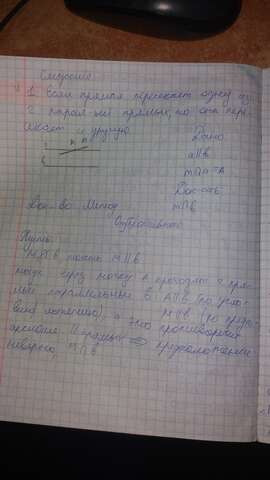 Следствие
1. Если прямая пересекает одну из
2 парал-ых прямых, то она пере
секает и другую
Дано
a∥b
m∩a=A
Док-ать
m∩b
Док-во Метод
От противного
Пусть
m∦b, тогда m∥b
тогда через точку A проходят 2 пря
мые параллельные b. A∥b (по усло
вию), m∥b (по предп
оложению), а это противоречит
аксиоме ∥ прямых ⇒ предположение
неверно m∩b